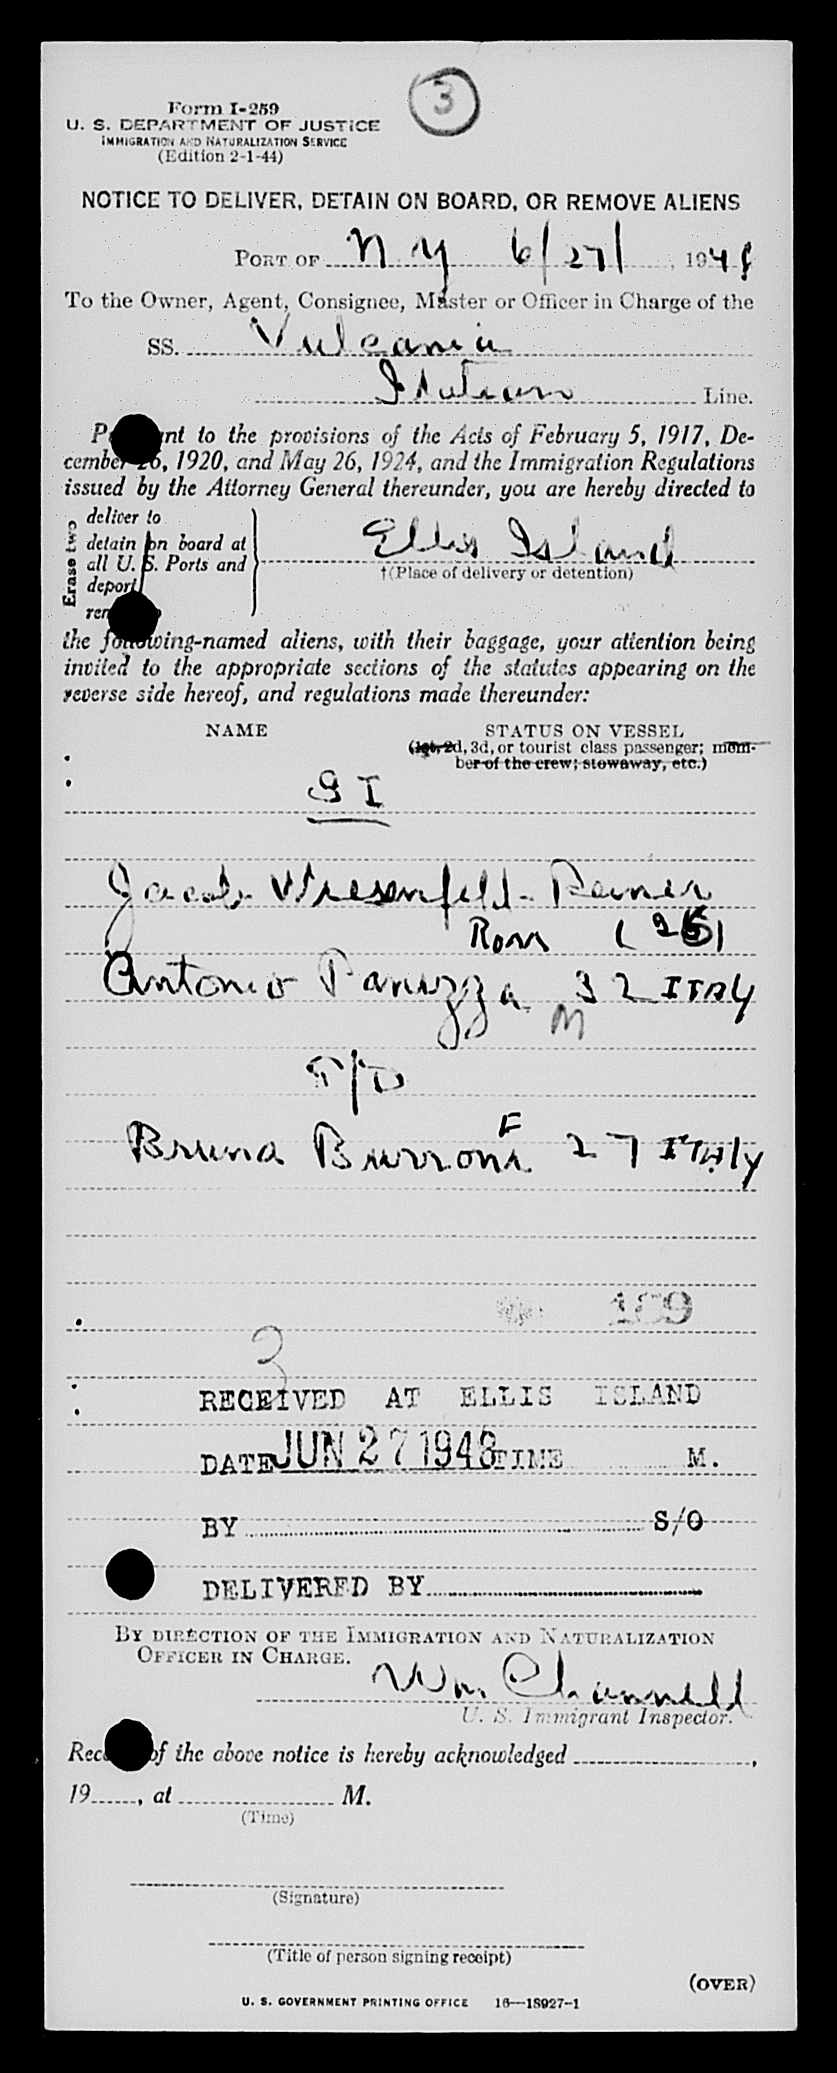 3
Form I-259
U. S. DEPARTMENT OF JUSTICE
IMMIGRATION AND NATURALIZATION SERVICE
(Edition 2-1-44)
NOTICE TO DELIVER, DETAIN ON BOARD, OR REMOVE ALIENS
PORT OF N Y 6/27/, 1948
To the Owner, Agent, Consignee, Master or Officer in Charge of the
SS. Vulcania
Italian Line.
P nt to the provisions of the Acts of February 5, 1917, De-
cember 26, 1920, and May 26, 1924, and the Immigration Regulations
issued by the Attorney General thereunder, you are hereby directed to
Erase two
deliver to
detain on board at
all U. S. Ports and
deport
Ellis Island
†(Place of delivery or detention)
the following-named aliens, with their baggage, your attention being
invited to the appropriate sections of the statutes appearing on the
reverse side hereof, and regulations made thereunder:
NAME STATUS ON VESSEL
(1st, 2d, 3d, or tourist class passenger; mem-
ber of the crew; stowaway, etc.)
S I
Jacob Wiesenfeld-Reiner
Rom (26)
Antonio Panuzza 32 ITALY
M
T/D
F
Bruna Burroni 27 ITALY
189
3
RECEIVED AT ELLIS ISLAND
DATE JUN 27 1948 TIME M.
BY S/O
DELIVERED BY
BY DIRECTION OF THE IMMIGRATION AND NATURALIZATION
OFFICER IN CHARGE.
Wm. Channell
U. S. Immigrant Inspector.
Rec of the above notice is hereby acknowledged ,
19 , at M.
(Time)
(Signature)
(Title of person signing receipt)
(OVER)
U. S. GOVERNMENT PRINTING OFFICE 16—18927-1